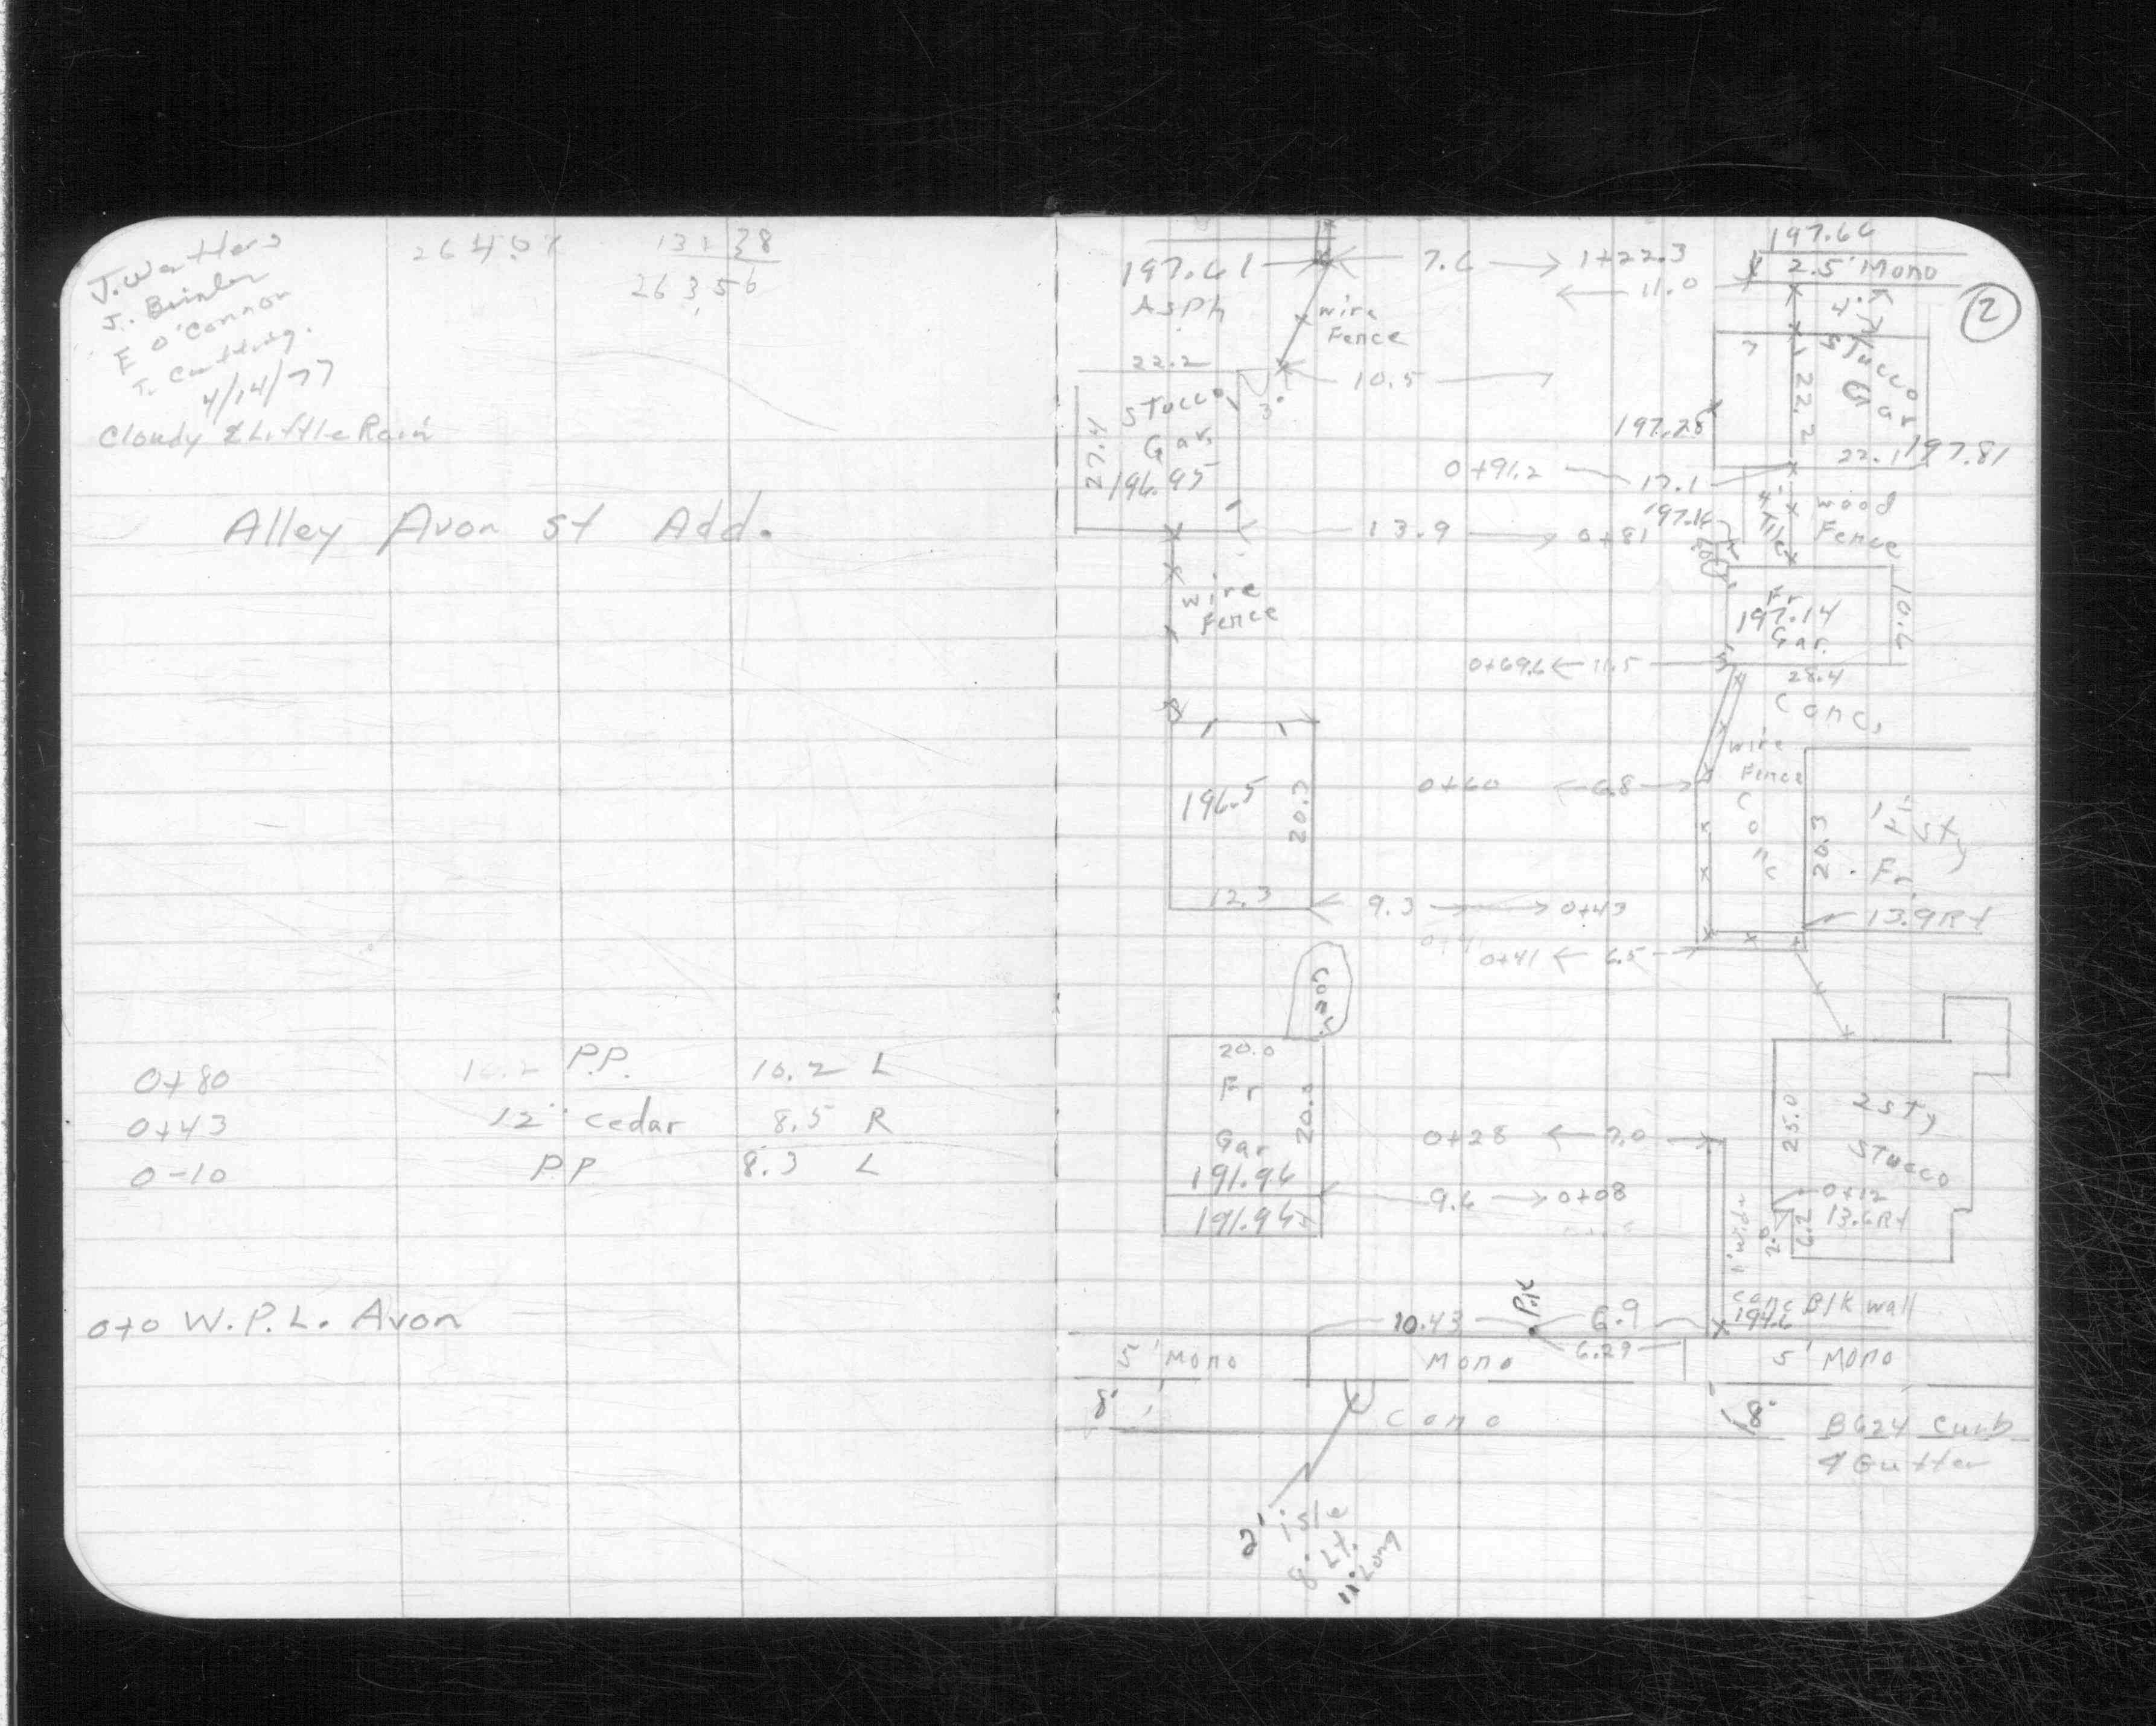 J. Watters
J.
E O'Connor
T.
4/14/77
Cloudy & Little Rain
26356
Alley Avon St Add.
0+80 10.2 P.P. 10.2 L
0+43 12" cedar 8.5 R
0-10 PP 8.3 L
0+0 W.P.L. Avon
2
197.66
197.61 7.6 1+22.3 2.5' Mono
11.0
Asph
wire
Fence
4'
22.2
10.5
3'
Stucco
Gar.
27.4
196.95
Stucco
Gar
22.2
197.28
22.1 197.81
0+91.2 17.1
4'
Tile
wood
Fence
197.16
13.9 0+81
wire
Fence
Fr
197.14
Gar.
0+69.6 11.5
28.4
Conc.
wire
Fence
196.5
20.3
0+60 6.8
Conc
20.3
1½ Sty
Fr.
12.3
9.3 0+43
13.9 Rt
0+41 6.5
20.0
Fr
Gar
20.0
191.96
191.94
0+28 7.0
25.0
2 Sty
Stucco
9.6 0+08
0+12
13.6 Rt
2.0
6.2
1' wide
conc Blk wall
194.6
P.K
10.43 6.9
6.29
5' Mono Mono 5' Mono
8' Conc 8'
B624 Curb
& Gutter
2' isle
8' Lt.
11' Long